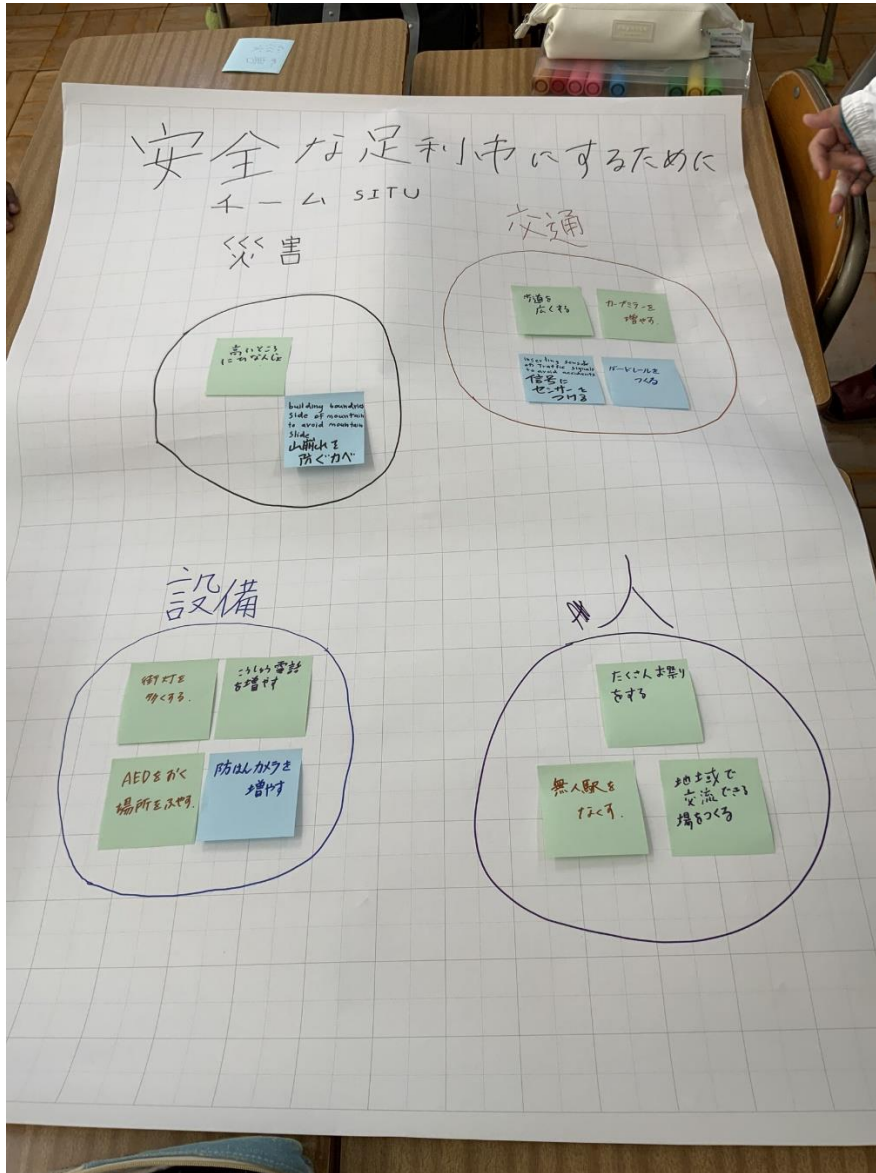 安全な足利市にするために
チーム SITU
災害
高いところ
にひなんじょ
building boundries
side of mountain
to avoid mountain
slide
山崩れを
防ぐカベ
交通
歩道を
広くする
カーブミラーを
増やす.
inserting sensor
of Traffic signals
to avoid accidents
信号に
センサーを
つける
ガードレールを
つくる
設備
街灯を
多くする.
こうしゅう電話
を増やす
AEDをおく
場所をふやす.
防はんカメラを
増やす
人
たくさんお祭り
をする
無人駅を
なくす.
地域で
交流できる
場をつくる